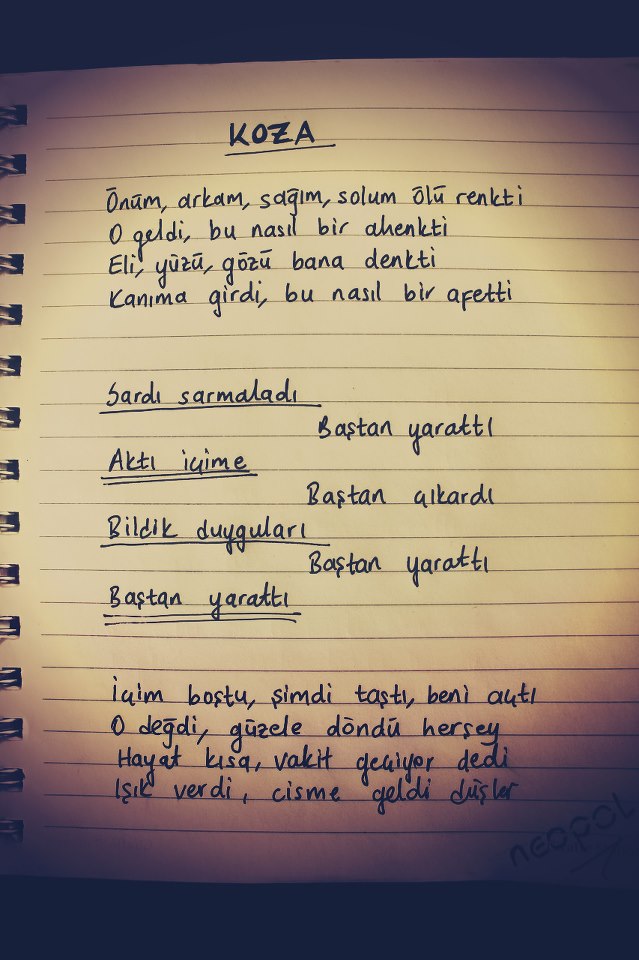 KOZA
Önüm, arkam, sağım, solum ölü renkti
O geldi, bu nasıl bir ahenkti
Eli, yüzü, gözü bana denkti
Kanıma girdi, bu nasıl bir afetti
Sardı sarmaladı
Baştan yarattı
Aktı içime
Baştan çıkardı
Bildik duyguları
Baştan yarattı
Baştan yarattı
İçim boştu, şimdi taştı, beni açtı
O değdi, güzele döndü herşey
Hayat kısa, vakit geçiyor dedi
Işık verdi, cisme geldi düşler
neopol